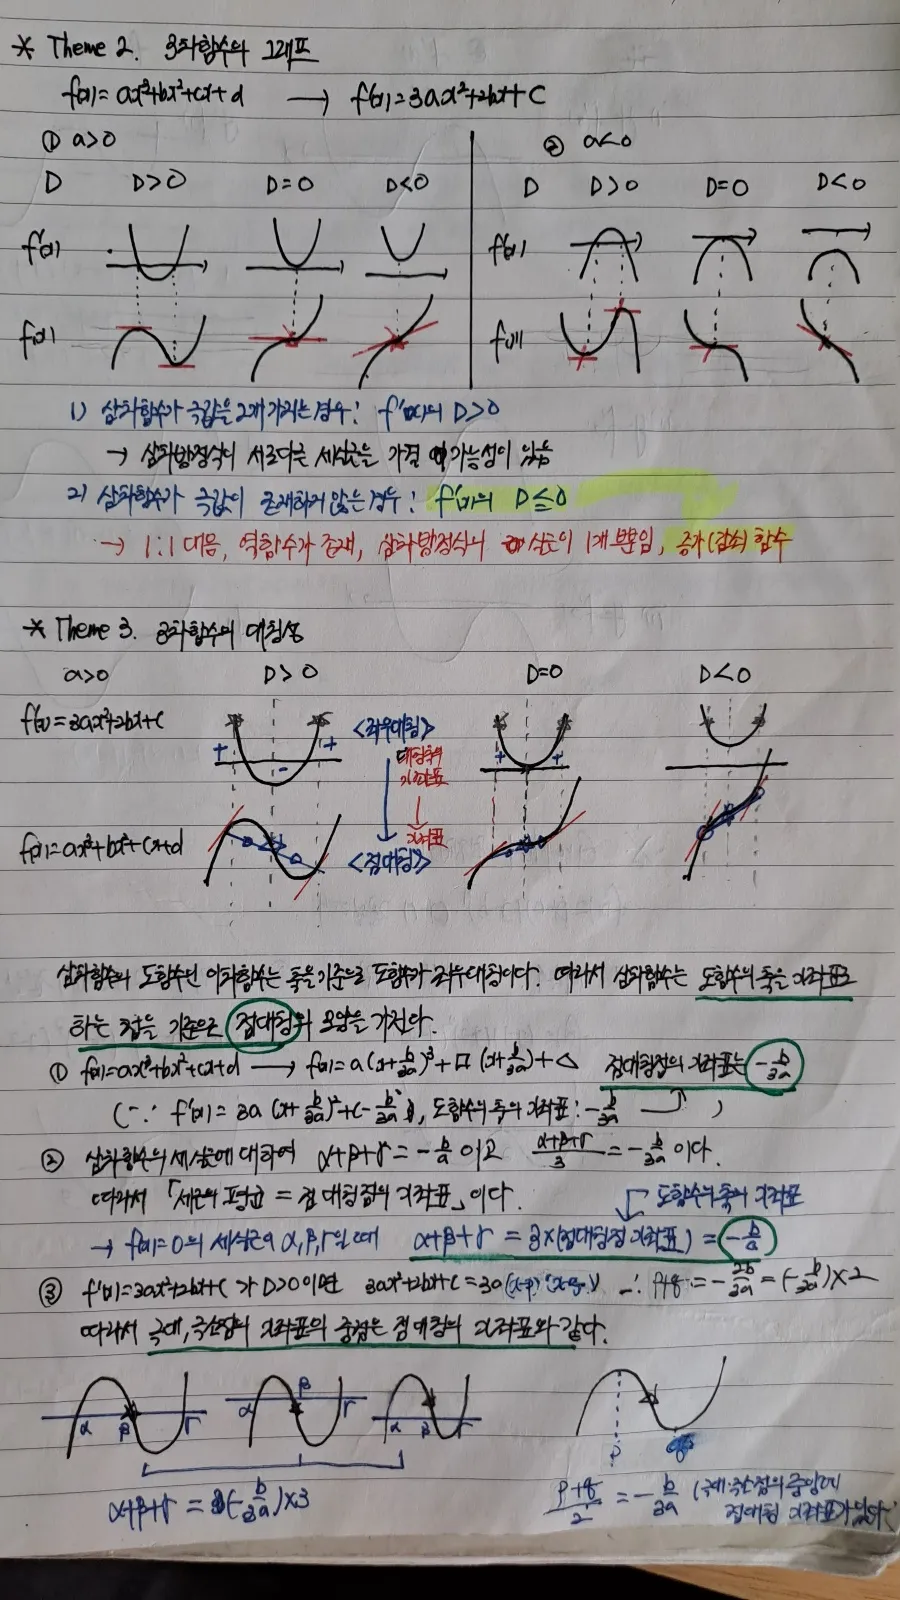 * Theme 2. 3차함수의 그래프
f(x)=ax³+bx²+cx+d → f'(x)=3ax²+2bx+C
① a>0
② a<0
D D>0 D=0 D<0
D D>0 D=0 D<0
f'(x)
f'(x)
f(x)
f(x)
1) 삼차함수가 극값을 2개 가지는 경우: f'(x)의 D>0
→ 삼차방정식이 서로다른 세실근을 가질 가능성이 있음
2) 삼차함수가 극값이 존재하지 않는 경우: f'(x)의 D≤0
→ 1:1 대응, 역함수가 존재, 삼차방정식의 실근이 1개 뿐임, 증가(감소) 함수
* Theme 3. 3차함수의 대칭성
a>0 D>0 D=0 D<0
f'(x)=3ax²+2bx+C
<좌우대칭>
+ - +
+ +
대칭축의
x좌표
↓
x좌표
f(x)=ax³+bx²+cx+d
<점대칭>
삼차함수의 도함수인 이차함수는 축을 기준으로 도함수가 좌우대칭이다. 따라서 삼차함수는 도함수의 축을 x좌표로
하는 점을 기준으로 점대칭의 모양을 가진다.
① f(x)=ax³+bx²+cx+d → f(x)=a(x+b/3a)³+□(x+b/3a)+△ 점대칭점의 x좌표는 -b/3a
(∵ f'(x)=3a(x+b/3a)²+c-b²/3a, 도함수의 축의 x좌표: -b/3a )
② 삼차함수의 세실근에 대하여 α+β+γ=-b/a 이고 α+β+γ/3=-b/3a 이다.
따라서 「세근의 평균 = 점대칭점의 x좌표」이다
도함수의 축의 x좌표
→ f(x)=0의 세실근이 α,β,γ일때 α+β+γ = 3×(점대칭점 x좌표) = -b/a
③ f'(x)=3ax²+2bx+C가 D>0이면 3ax²+2bx+C=3a(x-p)(x-q) ∴ p+q=-2b/3a=(-b/3a)×2
따라서 극대,극소점의 x좌표의 중점은 점대칭의 x좌표와 같다.
α β γ
α β γ
α β γ
p q
α+β+γ=(-b/3a)×3
p+q/2=-b/3a (극대·극소점의 중앙에
점대칭 x좌표가 있다)